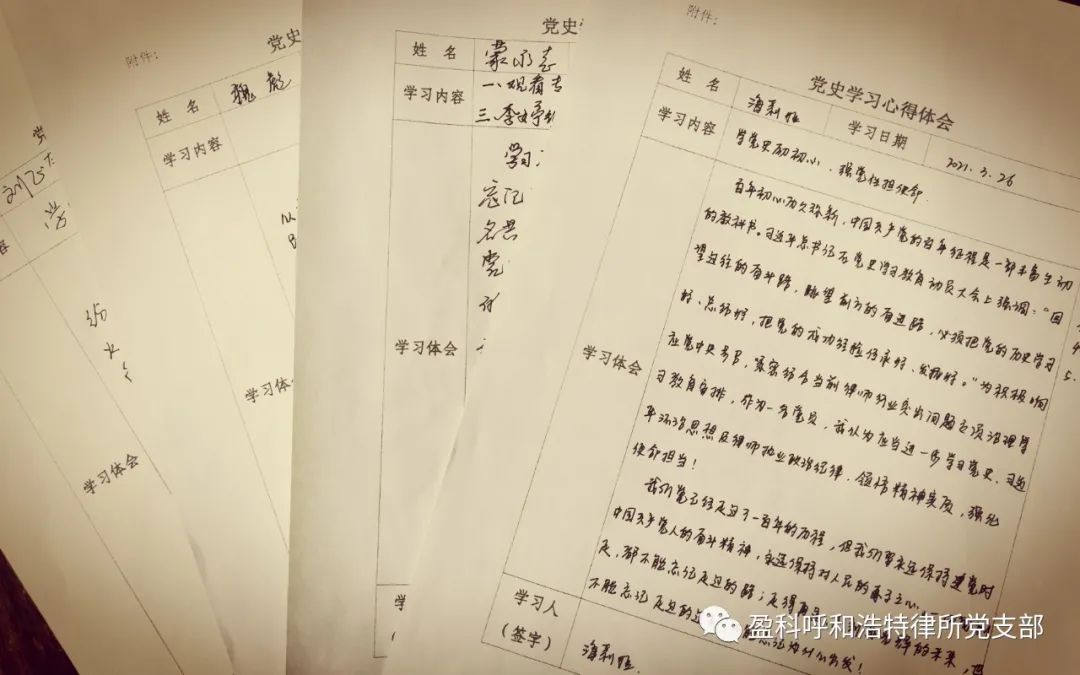 附件:
党史
姓 名
魏彪
学习内容
学习体会
学习体会
党史
姓 名
蒙
学习内容
一、观看
三、李
学习
忘记
名共
党
学习体会
学
附件:
党史学习心得体会
姓 名
海利恒
学习日期
2021.3.26
学习内容
学党史砺初心、强党性担使命
学习体会
百年初心历久弥新,中国共产党的百年征程是一部丰富生动
的教科书。习近平总书记在党史学习教育动员大会上强调:“回
望过往的奋斗路,眺望前方的奋进路,必须把党的历史学习
好、总结好,把党的成功经验传承好、发扬好。”为积极响
应党中央号召,紧密结合当前律师行业突出问题专项治理学
习教育安排,作为一名党员,我认为应当进一步学习党史、习近
平法治思想及律师执业政治纪律,领悟精神实质,强化
使命担当!
我们党已经走过了一百年的历程,但我们要永远保持建党时
中国共产党人的奋斗精神,永远保持对人民的赤子之心。
走,都不能忘记走过的路;走得再 的未来,也
不能忘记走过的过 为什么出发!
学习人
(签字)
海利恒
盈科呼和浩特律所党支部